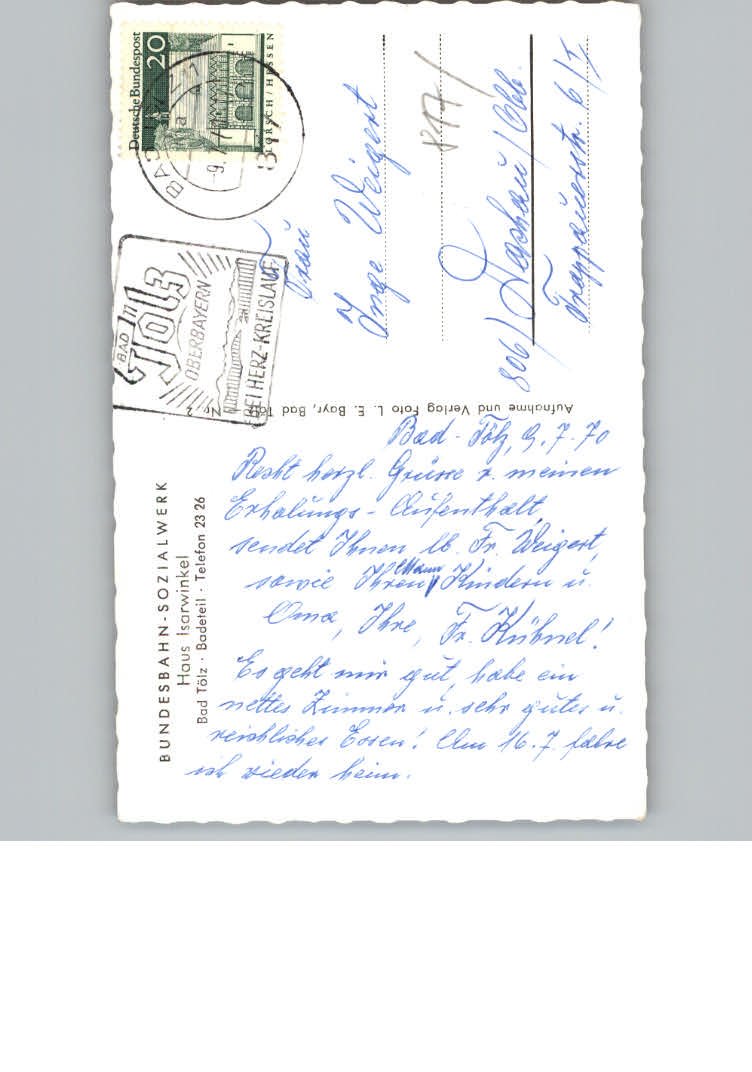 BUNDESBAHN-SOZIALWERK
Haus Isarwinkel
Bad Tölz · Badeteil · Telefon 23 26
Bad-Tölz, 9.7.70
Recht herzl. Grüsse v. meinen
Erholungs-Aufenthalt,
sendet Ihnen lb. Fr. Weigert,
sowie Ihren Mann, Kindern u.
Oma, Ihre, Fr. Kühnel!
Es geht mir gut, habe ein
nettes Zimmer u. sehr gutes u.
reichliches Essen! Am 16.7. fahre
ich wieder heim.
Aufnahme und Verlag Foto L. E. Bayr, Bad Tölz Nr. 2
Deutsche Bundespost
20
LORSCH/HESSEN
BAD TÖLZ
-9.7.
817
BAD
Tölz
OBERBAYERN
BEI HERZ-KREISLAUF
817/
Frau
Inge Weigert
806/ Dachau/Obb.
6/I